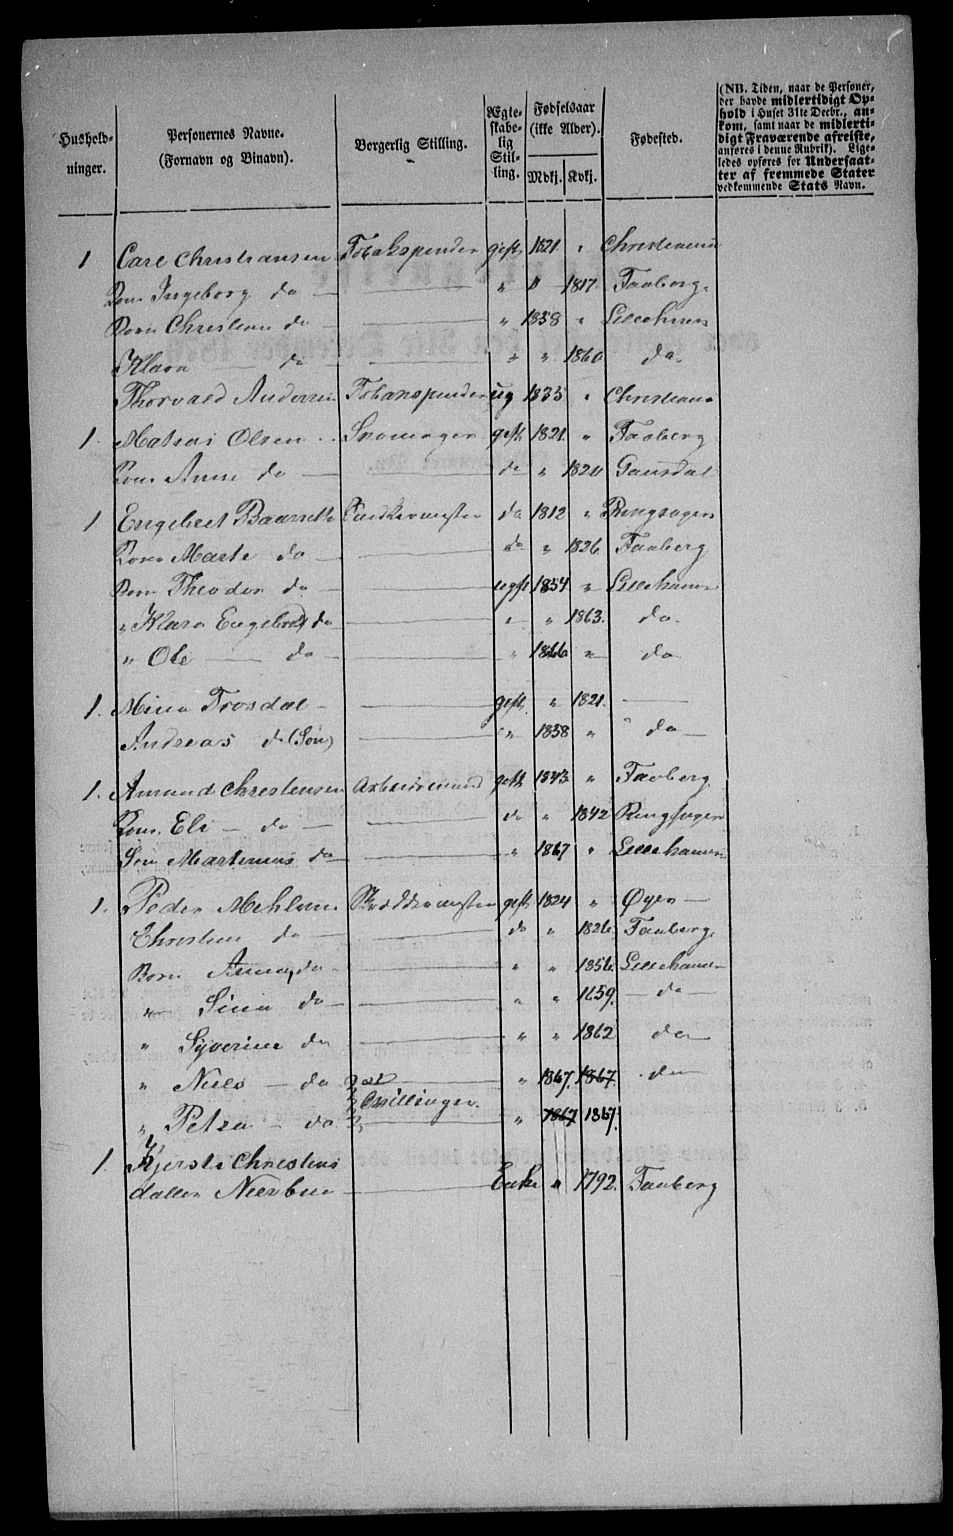 Hushold-
ninger.
Personernes Navne.
(Fornavn og Binavn).
Borgerlig Stilling.
Ægte-
skabe-
lig
Stil-
ling.
Fødselsaar
(ikke Alder).
Mdkj. Kvkj.
Fødested.
(NB. Tiden, naar de Personer,
der havde midlertidigt Op-
hold i Huset 31te Decbr., an-
kom, samt naar de midlerti-
digt Fraværende afreiste,
anføres i denne Rubrik). Lige-
ledes opføres for Undersaat-
ter af fremmede Stater
vedkommende Stats Navn.
1 Carl Christiansen Tobakspinder gift 1821 " Christiania
Kone Ingeborg do " " 1817 Faaberg
Born Christian do " 1858 " Lillehamr
Klara do " " 1860 do
Thorvald Andersen Tobakspinder ug 1835 " Christiania
1. Matias Olsen Skomager gift 1821 " Faaberg
Kone Anne do do " 1820 Gausdal
1 Engebret do 1812 " Ringsager
Kone Marte do do " 1826 Faaberg
Born Theodor do ugift 1854 " Lillehamr
" Klara Engebret do " " 1863. do
" Ole do " 1866 " do
1. Mina Trosdal gift " 1821.
Andreas do (Søn) " 1858 " do
1. Amund Christensen Arbeidsmand gift 1843 " Faaberg
Kone Eli do do " 1842 Ringsager
Søn Martinius do " 1867 " Lillehamer
1. Peder Skræddermester gift 1824 " Øyer
do do " 1826 Faaberg
Born Anna do " " 1856 Lillehamer
" Sina do " " 1859 do
" Syverine do " " 1862 do
" Niels do " 1867. 1867. do
Tvillinger.
" Petra do " 1867 1867.
1. Kjersti Christens
datter Enke " 1792. Faaberg